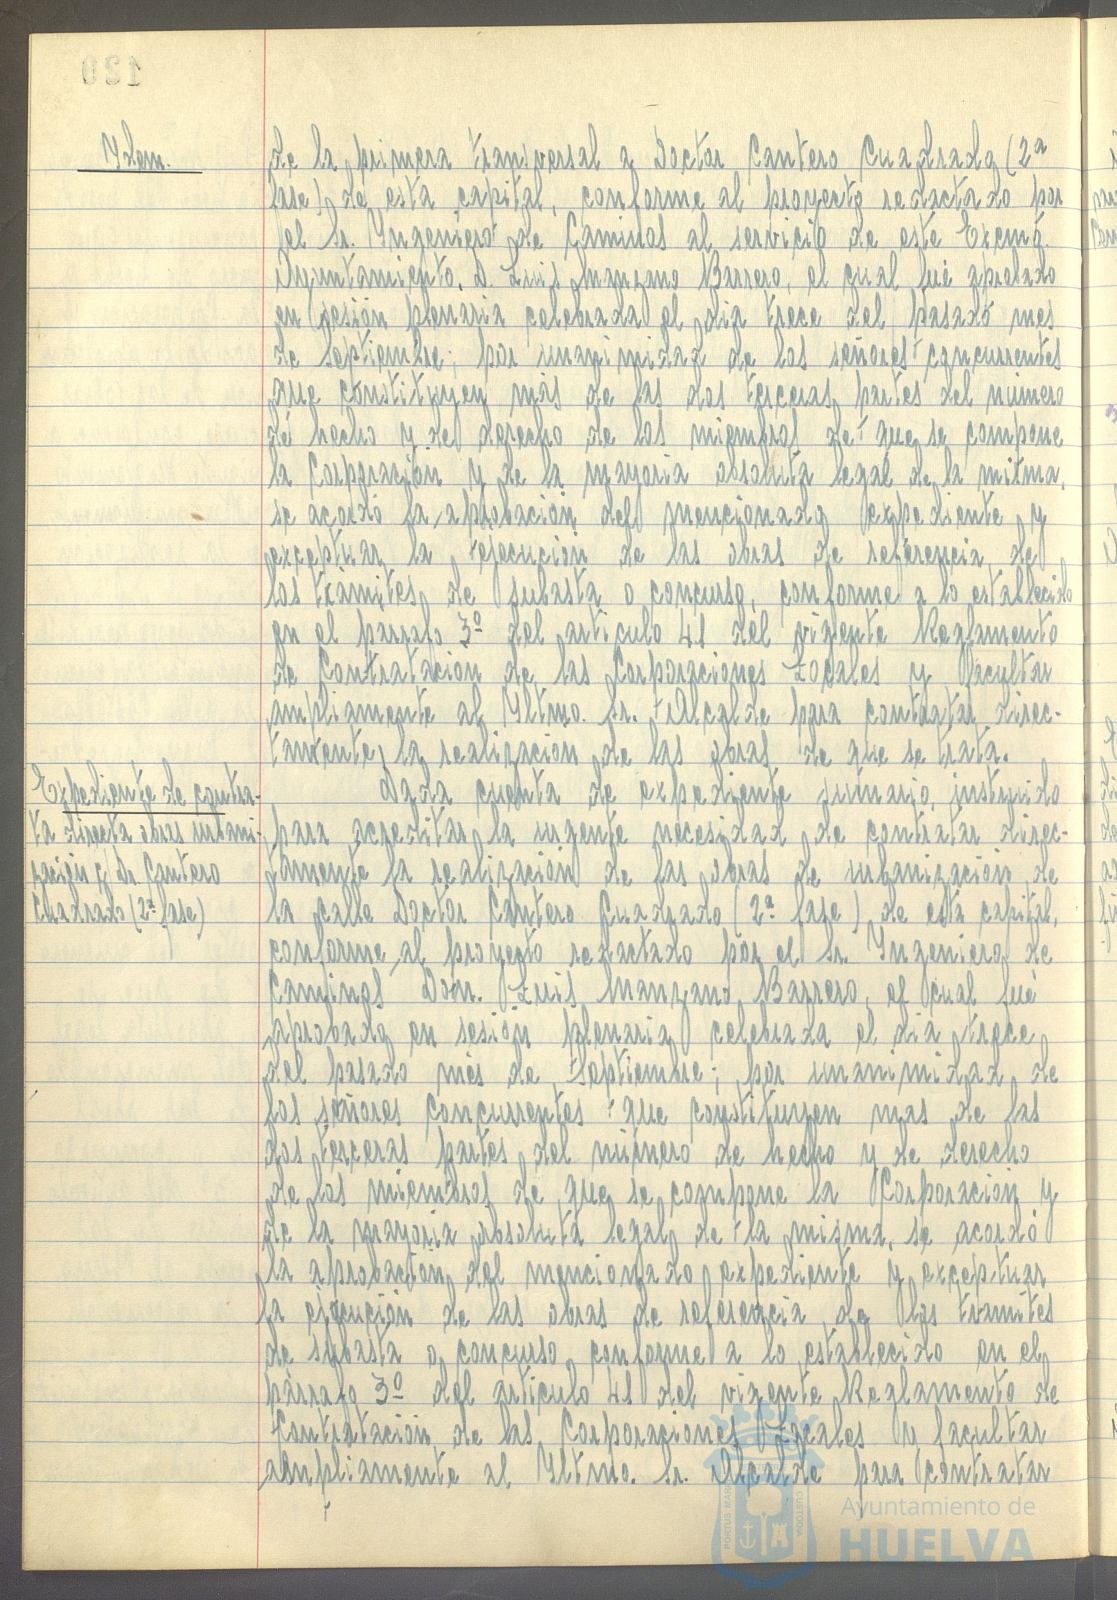 120
Ydem.
de la primera transversal a Doctor Cantero Cuadrado (2ª
fase) de esta capital, conforme al proyecto redactado por
el Sr. Yngeniero de Caminos al servicio de este Excmo.
Ayuntamiento, D. Luis Manzano Barrero, el cual fué aprobado
en sesión plenaria celebrada el dia trece del pasado mes
de Septiembre; por unanimidad de los señores concurrentes
que constituyen más de las dos terceras partes del número
de hecho y de derecho de los miembros de que se compone
la Corporación y de la mayoria absoluta legal de la misma,
se acordó la aprobación del mencionado expediente y
exceptuar la ejecución de las obras de referencia de
los trámites de subasta o concurso, conforme a lo establecido
en el párrafo 3º del articulo 41 del vigente Reglamento
de Contratación de las Corporaciones Locales y facultar
ampliamente al Yltmo. Sr. Alcalde para contratar direc-
tamente, la realización de las obras de que se trata.
Expediente de contra-
ta directa obras urbani-
zación c/ Dr. Cantero
Cuadrado (2ª fase)
Dada cuenta de expediente sumario, instruido
para acreditar la urgente necesidad de contratar direc-
tamente la realización de las obras de urbanización de
la calle Doctor Cantero Cuadrado (2ª fase) de esta capital,
conforme al proyecto redactado por el Sr. Yngeniero de
Caminos Don. Luis Manzano Barrero, el cual fué
aprobado en sesión plenaria celebrada el dia trece
del pasado mes de Septiembre; por unanimidad de
los señores concurrentes que constituyen mas de las
dos terceras partes del número de hecho y de derecho
de los miembros de que se compone la Corporación y
de la mayoria absoluta legal de la misma, se acordó
la aprobación del mencionado expediente y exceptuar
la ejecución de las obras de referencia de los tramites
de subasta o concurso, conforme a lo establecido en el
párrafo 3º del articulo 41 del vigente Reglamento de
Contratación de las Corporaciones Locales y facultar
ampliamente al Yltmo. Sr. Alcalde para contratar
PORTUS MARIS
CUSTODIA
Ayuntamiento de
HUELVA